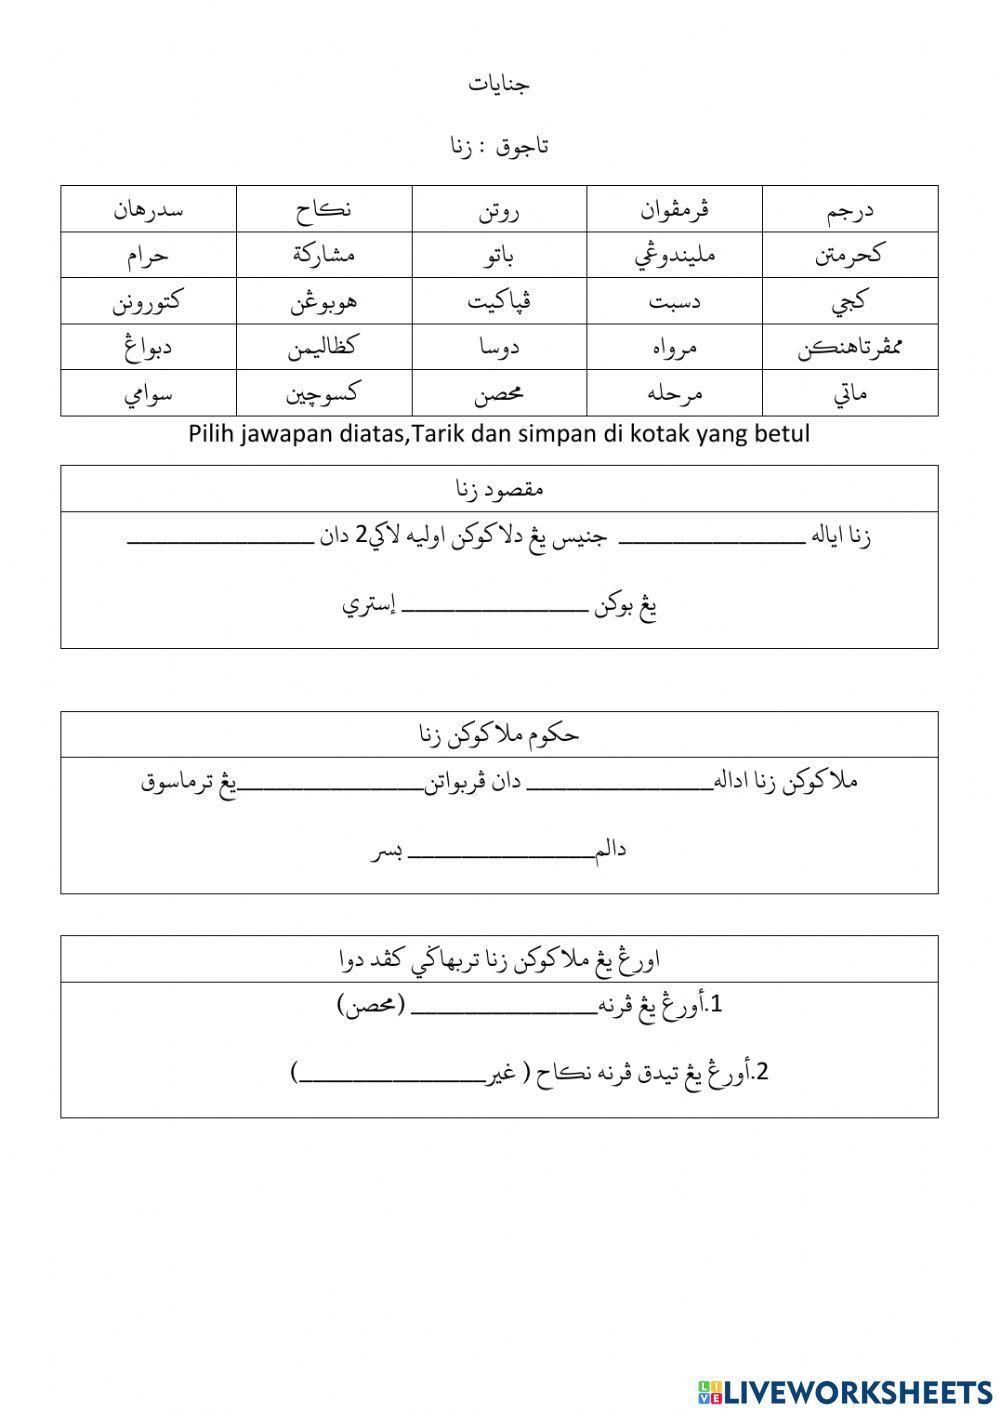 جنايات
تاجوق : زنا
درجم ڤرمڤوان روتن نكاح سدرهان
كحرمتن مليندوڠي باتو مشاركة حرام
كجي دسبت ڤڽاكيت هوبوڠن كتورونن
ممڤرتاهنكن مرواه دوسا كظاليمن دبواڠ
ماتي مرحله محصن كسوچين سوامي
Pilih jawapan diatas,Tarik dan simpan di kotak yang betul
مقصود زنا
زنا اياله ______________ جنيس يڠ دلاكوكن اوليه لاكي2 دان ______________
يڠ بوكن ______________ إستري
حكوم ملاكوكن زنا
ملاكوكن زنا اداله______________ دان ڤربواتن______________يڠ ترماسوق
دالم______________ بسر
اورڠ يڠ ملاكوكن زنا تربهاݢي كڤد دوا
1.أورڠ يڠ ڤرنه______________ (محصن)
2.أورڠ يڠ تيدق ڤرنه نكاح ( غير______________)
LIVEWORKSHEETS